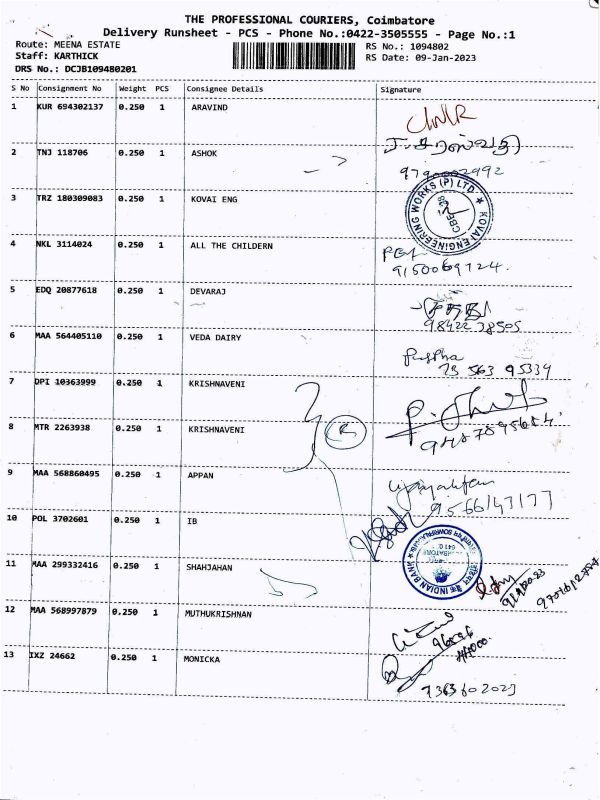 THE PROFESSIONAL COURIERS, Coimbatore
Delivery Runsheet - PCS - Phone No.:0422-3505555 - Page No.:1
Route: MEENA ESTATE
RS No.: 1094802
Staff: KARTHICK
RS Date: 09-Jan-2023
DRS No.: DCJB109480201
S No Consignment No Weight PCS Consignee Details Signature
1 KUR 694302137 0.250 1 ARAVIND
2 TNJ 118706 0.250 1 ASHOK
3 TRZ 180309083 0.250 1 KOVAI ENG
KOVAI ENGINEERING WORKS (P) LTD.
4 NKL 3114024 0.250 1 ALL THE CHILDERN
9150069724.
5 EDQ 20877618 0.250 1 DEVARAJ
98422 78505
6 MAA 564405110 0.250 1 VEDA DAIRY
Puspha
73 563 95339
7 DPI 10363999 0.250 1 KRISHNAVENI
8 MTR 2263938 0.250 1 KRISHNAVENI
9 MAA 568860495 0.250 1 APPAN
9566147177
10 POL 3702601 0.250 1 IB
INDIAN BANK
11 MAA 299332416 0.250 1 SHAHJAHAN
12 MAA 568997879 0.250 1 MUTHUKRISHNAN
13 IXZ 24662 0.250 1 MONICKA
7363602023